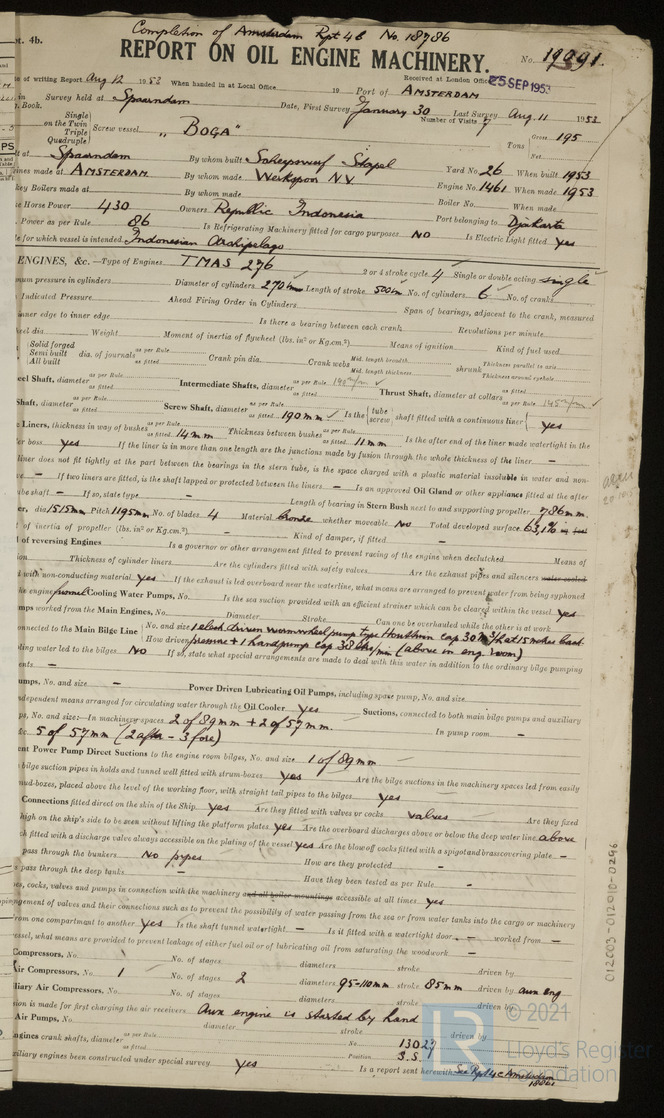 Completion of Amsterdam Rpt 4b No. 18786
pt. 4b.
REPORT ON OIL ENGINE MACHINERY.
No. 19091.
Received at London Office 25 SEP 1953
te of writing Report Aug 12 1953 When handed in at Local Office 19 Port of AMSTERDAM
in Survey held at Spaarndam Date, First Survey January 30 Last Survey Aug. 11 1953
. Book. Number of Visits 7
Single
on the Twin
Triple
Quadruple
Screw vessel " BOGA"
Tons Gross 195
Net
t at Spaarndam By whom built Scheepswerf Stapel Yard No. 26 When built 1953
ines made at AMSTERDAM By whom made Werkspoor N.V. Engine No. 1461 When made 1953
key Boilers made at By whom made Boiler No. When made
e Horse Power 430 Owners Republic Indonesia Port belonging to Djakarta
. Power as per Rule 86 Is Refrigerating Machinery fitted for cargo purposes NO Is Electric Light fitted yes
de for which vessel is intended Indonesian Archipelago
ENGINES, &c. —Type of Engines TMAS 276 2 or 4 stroke cycle 4 Single or double acting single
mum pressure in cylinders Diameter of cylinders 270 Length of stroke 500 No. of cylinders 6 No. of cranks
Indicated Pressure Ahead Firing Order in Cylinders Span of bearings, adjacent to the crank, measured
inner edge to inner edge Is there a bearing between each crank Revolutions per minute
heel dia Weight Moment of inertia of flywheel (lbs. in² or Kg.cm²) Means of ignition Kind of fuel used
Solid forged
Semi built
All built
dia. of journals as per Rule as fitted Crank pin dia. Crank webs Mid. length breadth Mid. length thickness shrunk Thickness parallel to axis Thickness around eyehole
eel Shaft, diameter as per Rule as fitted Intermediate Shafts, diameter as per Rule as fitted Thrust Shaft, diameter at collars as fitted as per Rule
Shaft, diameter as per Rule as fitted Screw Shaft, diameter as fitted 190mm Is the tube screw shaft fitted with a continuous liner yes
e Liners, thickness in way of bushes as per Rule as fitted 14mm Thickness between bushes as per Rule as fitted 11mm Is the after end of the liner made watertight in the
er boss yes If the liner is in more than one length are the junctions made by fusion through the whole thickness of the liner —
liner does not fit tightly at the part between the bearings in the stern tube, is the space charged with a plastic material insoluble in water and non-
ve — If two liners are fitted, is the shaft lapped or protected between the liners — Is an approved Oil Gland or other appliance fitted at the after
ube shaft — If so, state type - Length of bearing in Stern Bush next to and supporting propeller 786mm.
er, dia 1515mm Pitch 1195mm No. of blades 4 Material bronze whether moveable No Total developed surface 63,1%
t of inertia of propeller (lbs. in² or Kg.cm²) - Kind of damper, if fitted -
l of reversing Engines Is a governor or other arrangement fitted to prevent racing of the engine when declutched Means of
ion Thickness of cylinder liners Are the cylinders fitted with safety valves Are the exhaust pipes and silencers water cooled
d with non-conducting material yes If the exhaust is led overboard near the waterline, what means are arranged to prevent water from being syphoned
he engine funnel Cooling Water Pumps, No. Is the sea suction provided with an efficient strainer which can be cleared within the vessel yes
mps worked from the Main Engines, No. Diameter Stroke Can one be overhauled while the other is at work
onnected to the Main Bilge Line No. and size 1 elect. driven wormwheel pump type Houttuin cap 30 m³/h at 15 metres back
How driven pressure + 1 handpump cap 38 ltrs/min (above in eng. room)
ling water led to the bilges NO If so, state what special arrangements are made to deal with this water in addition to the ordinary bilge pumping
ents —
umps, No. and size — Power Driven Lubricating Oil Pumps, including spare pump, No. and size
dependent means arranged for circulating water through the Oil Cooler yes Suctions, connected to both main bilge pumps and auxiliary
ps, No. and size:—In machinery spaces 2 of 89mm + 2 of 57mm. In pump room -
&c. 5 of 57mm (2 after - 3 fore)
ent Power Pump Direct Suctions to the engine room bilges, No. and size 1 of 89mm
bilge suction pipes in holds and tunnel well fitted with strum-boxes yes Are the bilge suctions in the machinery spaces led from easily
mud-boxes, placed above the level of the working floor, with straight tail pipes to the bilges yes
Connections fitted direct on the skin of the Ship yes Are they fitted with valves or cocks valves Are they fixed
high on the ship's side to be seen without lifting the platform plates yes Are the overboard discharges above or below the deep water line above
ch fitted with a discharge valve always accessible on the plating of the vessel yes Are the blow off cocks fitted with a spigot and brass covering plate —
pass through the bunkers No pipes How are they protected -
pass through the deep tanks — Have they been tested as per Rule -
es, cocks, valves and pumps in connection with the machinery and all boiler mountings accessible at all times yes
ngement of valves and their connections such as to prevent the possibility of water passing from the sea or from water tanks into the cargo or machinery
rom one compartment to another yes Is the shaft tunnel watertight — Is it fitted with a watertight door — worked from —
essel, what means are provided to prevent leakage of either fuel oil or of lubricating oil from saturating the woodwork —
Compressors, No. No. of stages diameters stroke driven by
Air Compressors, No. 1 No. of stages 2 diameters 95-110mm stroke 85mm driven by aux eng
liary Air Compressors, No. No. of stages diameters stroke driven by
sion is made for first charging the air receivers Aux engine is started by hand
Air Pumps, No. diameter stroke driven by
ngines crank shafts, diameter as per Rule as fitted No. 13027
Position S.S.
xiliary engines been constructed under special survey yes Is a report sent herewith See Rpt 4c Amsterdam
012003-012010-0296
© 2021
Lloyd's Register
Foundation